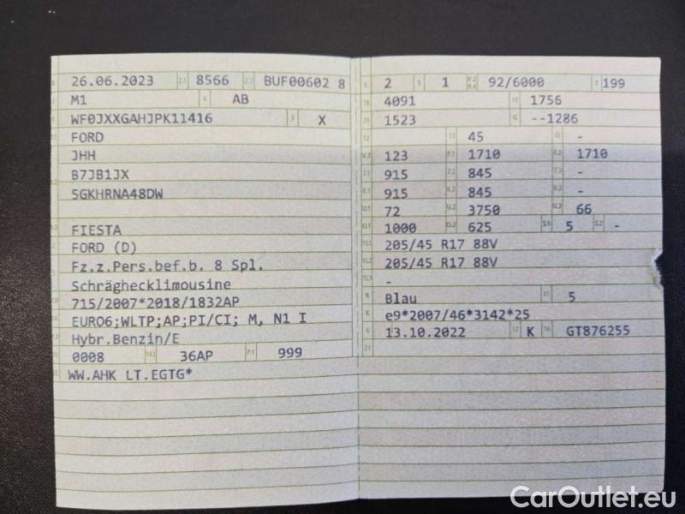 26.06.2023 8566 BUF00602 8
M1 AB
WF0JXXGAHJPK11416 X
FORD
JHH
B7JB1JX
5GKHRNA48DW
FIESTA
FORD (D)
Fz.z.Pers.bef.b. 8 Spl.
Schräghecklimousine
715/2007*2018/1832AP
EURO6;WLTP;AP;PI/CI; M, N1 I
Hybr.Benzin/E
0008 36AP 999
WW.AHK LT.EGTG*
2 1 92/6000 199
4091 1756
1523 --1286
45 -
123 1710 1710
915 845 -
915 845 -
72 3750 66
1000 625 5 -
205/45 R17 88V
205/45 R17 88V
-
Blau 5
e9*2007/46*3142*25
13.10.2022 K GT876255
CarOutlet.eu